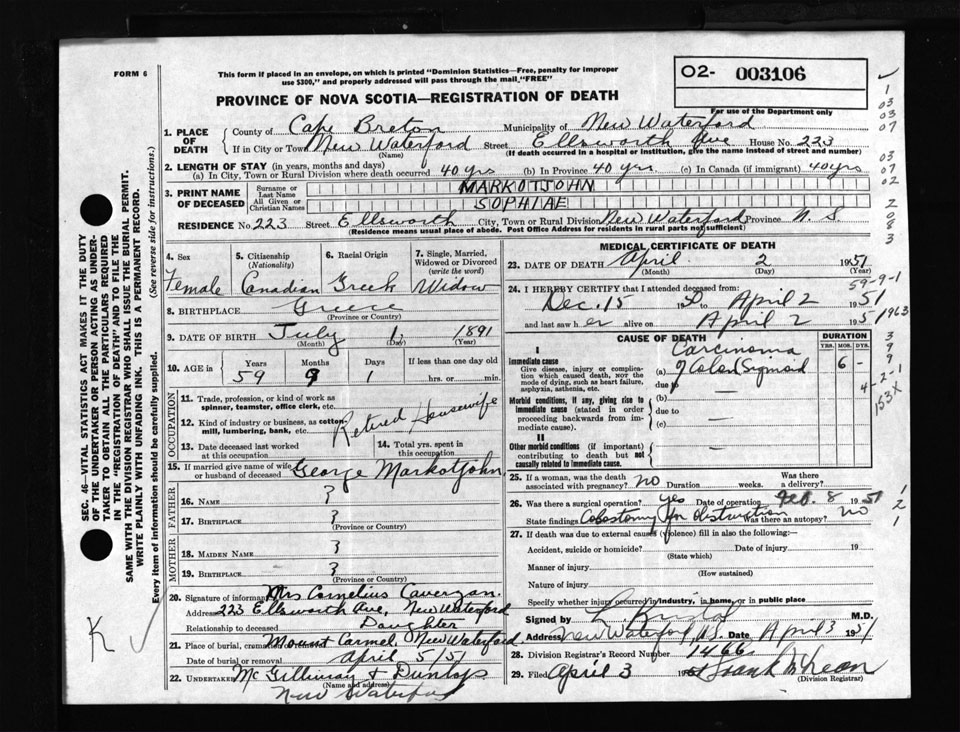 FORM 6
This form if placed in an envelope, on which is printed "Dominion Statistics—Free, penalty for improper
use $300," and properly addressed will pass through the mail, "FREE"
PROVINCE OF NOVA SCOTIA—REGISTRATION OF DEATH
02- 003106
For use of the Department only
1. PLACE OF DEATH County of Cape Breton Municipality of New Waterford
If in City or Town New Waterford Street Ellsworth Ave House No. 223
(Name) (If death occurred in a hospital or institution, give the name instead of street and number)
2. LENGTH OF STAY (in years, months and days)
(a) In City, Town or Rural Division where death occurred 40 yrs (b) In Province 40 yrs (c) In Canada (if immigrant) 40 yrs
3. PRINT NAME OF DECEASED Surname or Last Name MARKOTJOHN
All Given or Christian Names SOPHIAE
RESIDENCE No. 223 Street Ellsworth City, Town or Rural Division New Waterford Province N. S.
(Residence means usual place of abode. Post Office Address for residents in rural parts not sufficient)
4. Sex Female
5. Citizenship (Nationality) Canadian
6. Racial Origin Greek
7. Single, Married, Widowed or Divorced (write the word) Widow
8. BIRTHPLACE Greece
(Province or Country)
9. DATE OF BIRTH July 1 1891
(Month) (Day) (Year)
10. AGE in Years 59 Months 9 Days 1 If less than one day old
hrs. or min.
OCCUPATION
11. Trade, profession, or kind of work as spinner, teamster, office clerk, etc.
12. Kind of industry or business, as cotton mill, lumbering, bank, etc.
Retired Housewife
13. Date deceased last worked at this occupation
14. Total yrs. spent in this occupation
15. If married give name of wife or husband of deceased George Markotjohn
FATHER
16. Name ?
17. Birthplace ?
(Province or Country)
MOTHER
18. Maiden Name ?
19. Birthplace ?
(Province or Country)
20. Signature of informant Mrs Cornelius
Address 223 Ellsworth Ave, New Waterford
Relationship to deceased Daughter
21. Place of burial, cremation or removal Mount Carmel, New Waterford.
Date of burial or removal April 5/51
22. Undertaker McGillivray & Dunlop
(Name and address)
New Waterford
MEDICAL CERTIFICATE OF DEATH
23. DATE OF DEATH April 2 1951
(Month) (Day) (Year)
24. I HEREBY CERTIFY that I attended deceased from:
Dec. 15 19 to April 2 1951
and last saw her alive on April 2 1951
CAUSE OF DEATH
DURATION
YRS. MOS. DYS.
I
Immediate cause
Give disease, injury or complication which caused death, not the mode of dying, such as heart failure, asphyxia, asthenia, etc.
(a) Carcinoma of Colon Sigmoid 6 -
due to
Morbid conditions, if any, giving rise to immediate cause (stated in order proceeding backwards from immediate cause).
(b)
due to
(c)
II
Other morbid conditions (if important) contributing to death but not causally related to immediate cause.
25. If a woman, was the death associated with pregnancy? no Duration weeks. Was there a delivery?
26. Was there a surgical operation? yes Date of operation Feb. 8 1951
State findings Colostomy for obstruction Was there an autopsy? no
27. If death was due to external causes (violence) fill in also the following:
Accident, suicide or homicide? Date of injury 19
(State which)
Manner of injury
(How sustained)
Nature of injury
Specify whether injury occurred in industry, in home, or in public place
Signed by M.D.
Address New Waterford, N.S. Date April 3 1951
28. Division Registrar's Record Number 1466
29. Filed April 3 19 Frank McLean
(Division Registrar)
SEC. 46-VITAL STATISTICS ACT MAKES IT THE DUTY
OF THE UNDERTAKER OR PERSON ACTING AS UNDER-
TAKER TO OBTAIN ALL THE PARTICULARS REQUIRED
IN THE "REGISTRATION OF DEATH" AND TO FILE THE
SAME WITH THE DIVISION REGISTRAR WHO SHALL ISSUE THE BURIAL PERMIT.
WRITE PLAINLY WITH UNFADING INK. THIS IS A PERMANENT RECORD.
Every item of information should be carefully supplied. (See reverse side for instructions.)
K ✓
✓
1
03
03
07
03
07
02
2
0
8
3
59-9-1
1963
3
9
9
1
4-2-1
153X
1
2
1